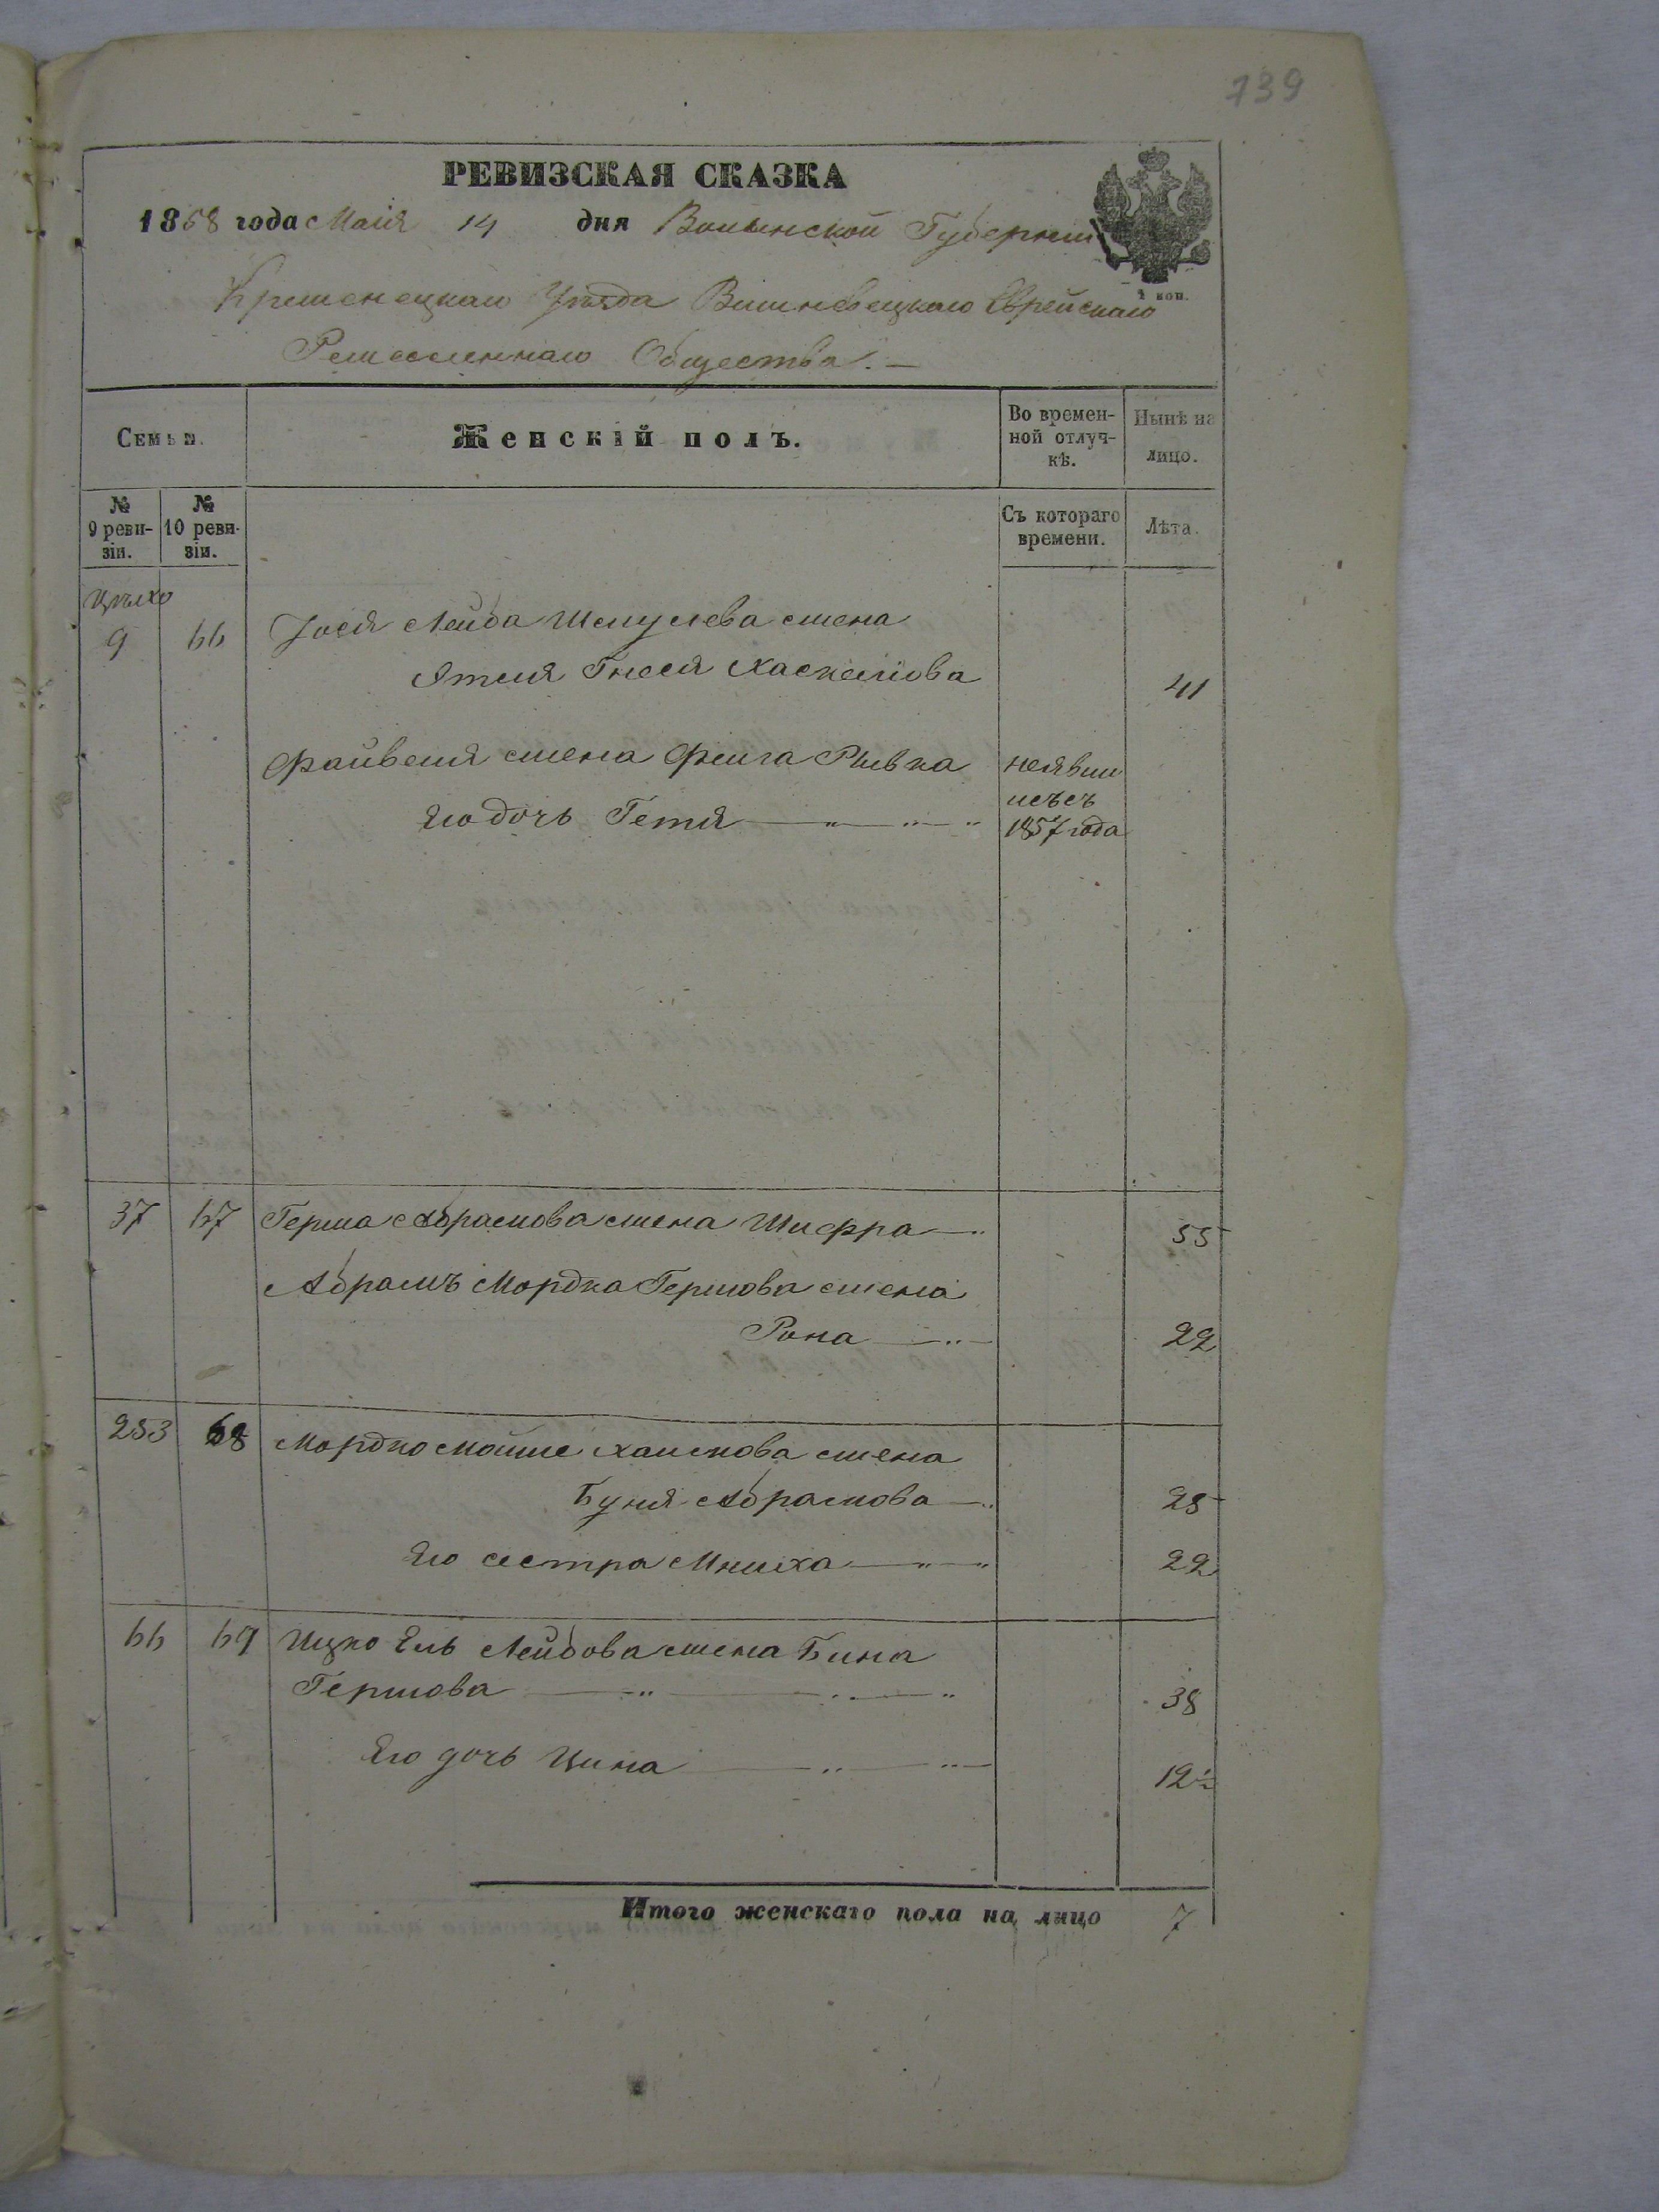 739
РЕВИЗСКАЯ СКАЗКА
1858 года Маія 14 дня Волынской Губерніи
Кременецкаго Уѣзда Вишневецкаго Еврейскаго
Ремесленнаго Общества. —
Семьи.
Женскій полъ.
Во времен-
ной отлуч-
кѣ.
Нынѣ на
лицо.
№
9 реви-
зіи.
№
10 реви-
зіи.
Съ котораго
времени.
Лѣта.
9 66 Лейба Шмулева жена
Гнеся Хаскелiова 41
Файвеля жена Фейга Рывка неявив
1857 года
Его дочь Гетя — „ — „ — „
37 67 Герша Абрамова жена Шифра — „ 55
Абрамъ Мордка Гершова жена
Рона — „ — 22
253 68 Мордко Мойше Хаимова жена
Буня Абрамова — „ 25
Его сестра Мниха — „ — „ 22
66 69 Ицко Ель Лейбова жена Бина
Гершова — „ — „ — „ 38
Его дочь Цина — „ — „ — 12½
Итого женскаго пола на лицо 7